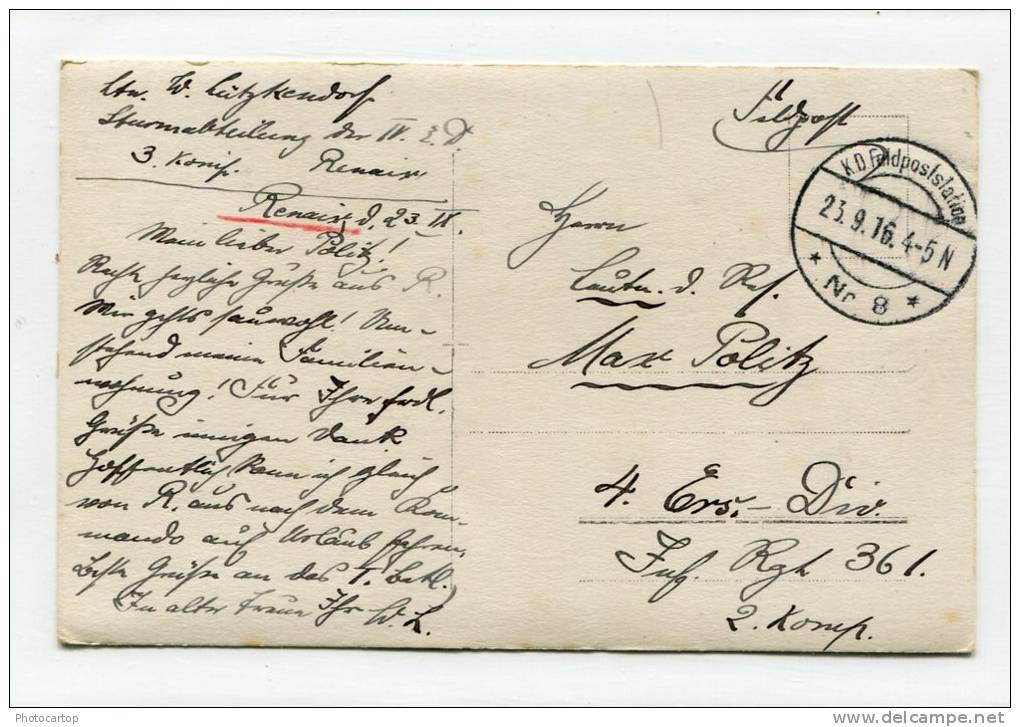 Ltn. W. Lützkendorf
Sturmabteilung der IV. E. D.
3. Komp. Renaix
Renaix, d. 23. IX.
Mein lieber Politz!
Recht herzliche Grüße aus R.
Mir gehts sauwohl! Um-
stehend meine Familien-
wohnung! Für Ihre frdl.
Grüße innigen Dank
Hoffentlich kann ich gleich
von R. aus nach dem Kom-
mando auf Urlaub fahren.
Beste Grüße an das 1. Batl.
In alter Treue Ihr W. L.
Feldpost
K.D. Feldpoststation
23.9.16. 4-5 N
* Nr. 8 *
Herrn
Leutn. d. Res.
Max Politz
4. Ers. - Div.
Inf. Rgt 361.
2. Komp.
Photocartop
http://photocartop.delcampe.net